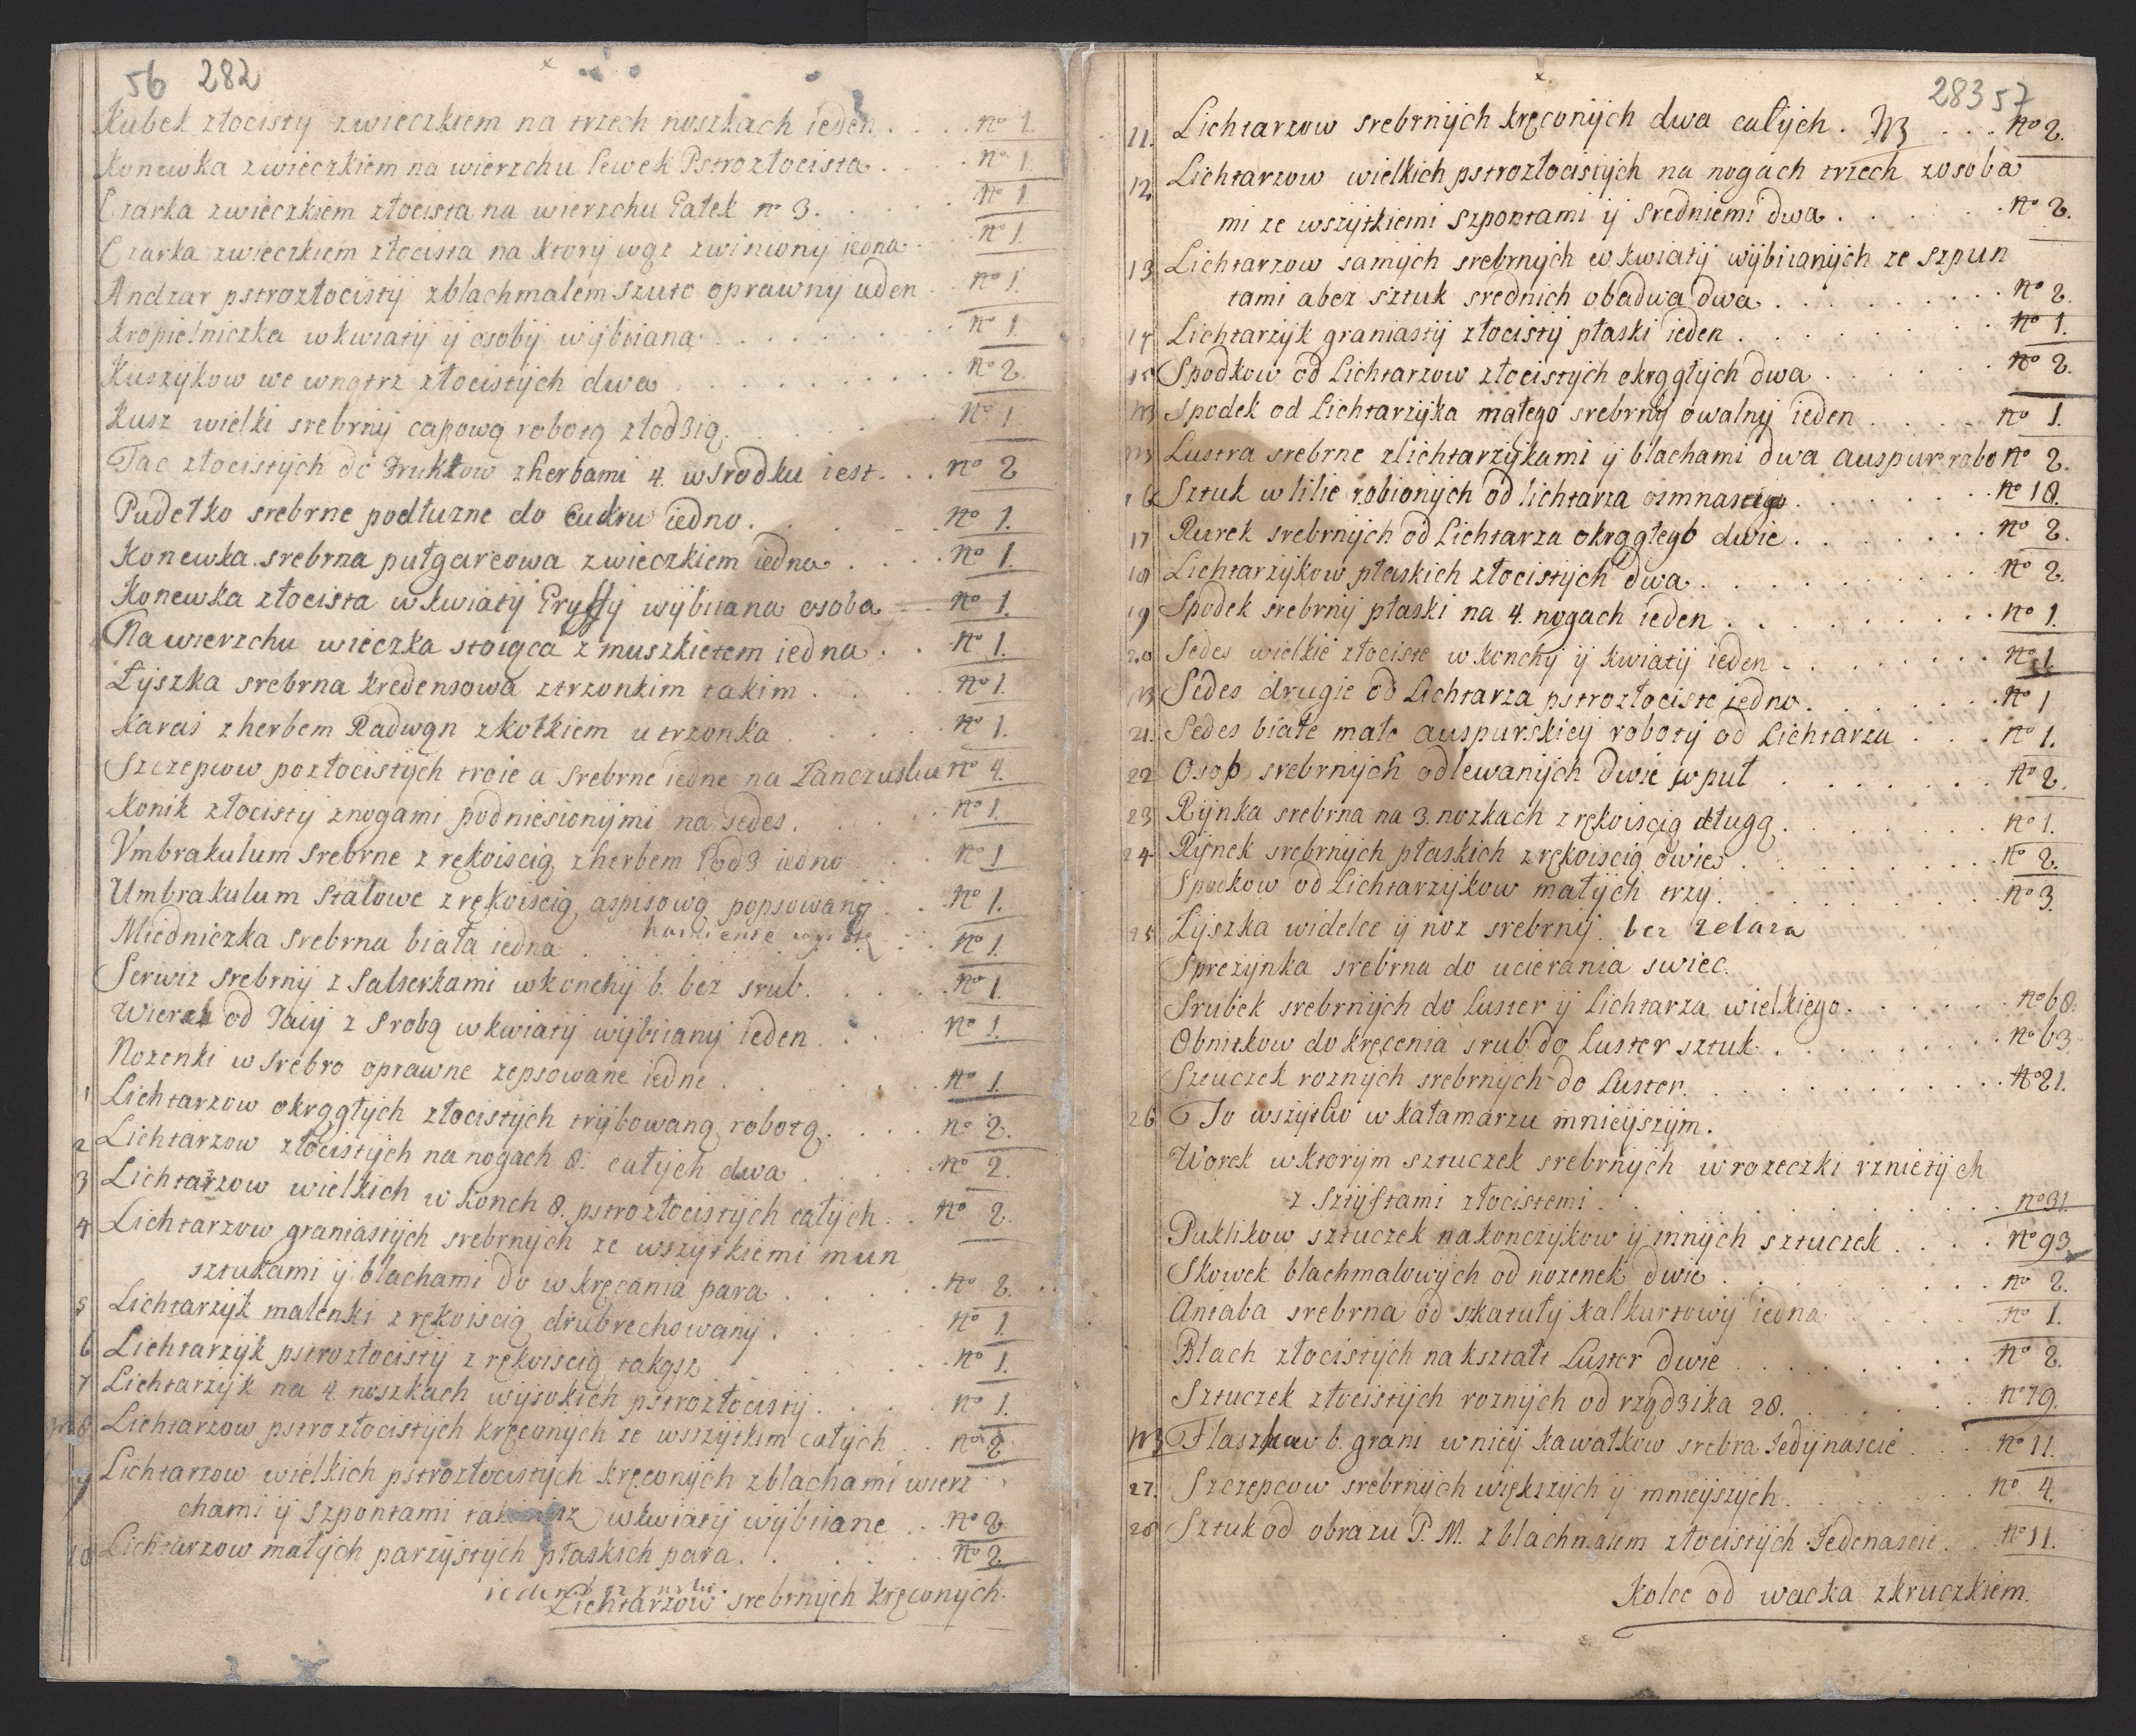 56 282
Kubek złocisty zwieczkiem na trzech noszkach ieden . . . . no 1.
Konewka zwieczkiem na wierzchu lewek Pstrozłocista . . . no 1
Czarka zwieczkiem złocista na wierzchu Gałek no 3. . . . . no 1
Czarka zwieczkiem złocista na ktory wąz zwiniony iedna . . . no 1.
Andzar pstrozłocisty zblachmalem szuto oprawny ieden . . no 1.
Kropielniczka w kwiaty y osoby wybiiana . . . . . no 1.
Kuszykow we wnątrz złocistych dwa . . . . . no 2.
Kusz wielki srebrny capową robotą złodzig. . . . . no 1.
Tac złocistych do Fruktow zherbami 4. wsrodku iest. . . no 2
Pudełko srebrne podłuzne do Cukru iedno. . . . no 1.
Konewka srebrna pułgarcowa zwieczkiem iedna . . . . no 1.
Konewka złocista w kwiaty Gryffy wybiiana osoba . . no 1.
Na wierzchu wieczka stoiąca z muszkietem iedna . . no 1.
Łyszka srebrna kredensowa ztrzonkim takim . . . . no 1.
Karas zherbem Radwąn zkotkiem u trzonka . . . . . no 1.
Szczepcow pozłocistych troie a srebrne iedne na Lanczusku no 4.
Konik złocisty znogami podniesionymi na sedes. . . . no 1.
Vmbrakulum srebrne z rękoiscią zherbem Łodz iedno . . . no 1
Umbrakulum stalowe z rękoiscią aspisową popsowaną . . no 1.
Miedniczka srebrna biała iedna . . . . . no 1.
Serwiz srebrny z Salserkami w konchy 6. bez srub. . . . no 1.
Wierzch od Jaiy z srobą w kwiaty wybiiany ieden . . . no 1.
Nozenki w srebro oprawne zepsowane iedne . . . . . no 1.
1 Lichtarzow okrągłych złocistych trybowaną robotą. . . . no 2.
2 Lichtarzow złocistych na nogach 8. całych dwa . . . . no 2.
3 Lichtarzow wielkich w konch 8. pstrozłocistych całych. . . no 2.
4 Lichtarzow graniastych srebrnych ze wszytkiemi mun
sztukami y blachami do w kręcania para . . . . . no 2. . .
5 Lichtarzyk malenki z rękoiscią drubrechowany . . . . no 1.
6 Lichtarzyk pstrozłocisty z rękoiscią takąsz . . . . no 1.
7 Lichtarzyk na 4. noszkach wysokich pstrozłocisty . . . . no 1.
8 Lichtarzow pstrozłocistych kręconych ze wszytkim całych . . no 2
9 Lichtarzow wielkich pstrozłocistych kręconych zblachami wierz
chami y szpontami w kwiaty wybiiane . . no 2
10 Lichtarzow małych parzystych płaskich para. . . . . no 2
ieden
Lichtarzow srebrnych kręconych.
283 57
11. Lichtarzow srebrnych kręconych dwa całych. NB . . . no 2.
12 Lichtarzow wielkich pstrozłocistych na nogach trzech zosoba
mi ze wszytkiemi szpontami y sredniemi dwa . . . . . no 2.
13 Lichtarzow samych srebrnych w kwiaty wybiianych ze szpun
tami abez sztuk srednich obadwa dwa . . . . . . no 2.
14 Lichtarzyk graniasty złocisty płaski ieden . . . . . . no 1.
15 Spodkow od Lichtarzow złocistych okrągłych dwa . . . . . no 2.
NB Spodek od Lichtarzyka małego srebrny owalny ieden . . . . no 1.
NB Lustra srebrne zlichtarzykami y blachami dwa auspur robo no 2.
16 Sztuk w lilie robionych od lichtarza osmnascie . . . . . no 18.
17 Rurek srebrnych od Lichtarza okrągłego dwie . . . . . . no 2.
18 Lichtarzykow płaskich złocistych dwa . . . . . . . no 2.
19 Spodek srebrny płaski na 4. nogach ieden . . . . . . no 1.
20 Sedes wielkie złociste w konchy y kwiaty ieden . . . . . . no 1
NB Sedes drugie od Lichtarza pstrozłociste iedno. . . . . . no 1
21. Sedes białe małe auspurskiey roboty od Lichtarza . . . no 1.
22 Osob srebrnych odlewanych dwie w puł . . . . . . no 2.
23 Rynka srebrna na 3. nozkach z rękoiscią długą . . . . . . no 1.
24 Rynek srebrnych płaskich z rękoiscią dwies . . . . . . no 2.
Spodkow od Lichtarzykow małych trzy. . . . . . . no 3.
25 Łyszka widelce y noz srebrny. bez zelaza
Sprezynka srebrna do ucierania swiec.
Srubek srebrnych do luster y lichtarza wielkiego . . . . . . no 68.
Obnitkow do kręcenia srub do luster sztuk . . . . . . . no 63.
Sztuczek roznych srebrnych do luster. . . . . . . . no 21.
26 To wszytko w kałamarzu mnieyszym.
Worek w ktorym sztuczek srebrnych w rozeczki rznietych
z sztyftami złocistemi . . . . . . . no 31.
Puklikow sztuczek nakonczykow y innych sztuczek . . . . no 93
Skowek blachmalowych od nozenek dwie . . . . . . no 2.
Antaba srebrna od szkatuły kalkurtowy iedna . . . . no 1.
Blach złocistych na kształt Luster dwie . . . . . . no 2.
Sztuczek złocistych roznych od rządzika 28. . . . . . no 19.
NB Flaszka w 6. grani w niey kawałkow srebra Jedynascie . . . no 11.
27. Szczepcow srebrnych większych y mnieyszych . . . . . no 4.
28 Sztuk od obrazu P. M. z blachmalem złocistych Jedenascie. . . no 11.
Kolec od wacka zkruczkiem.